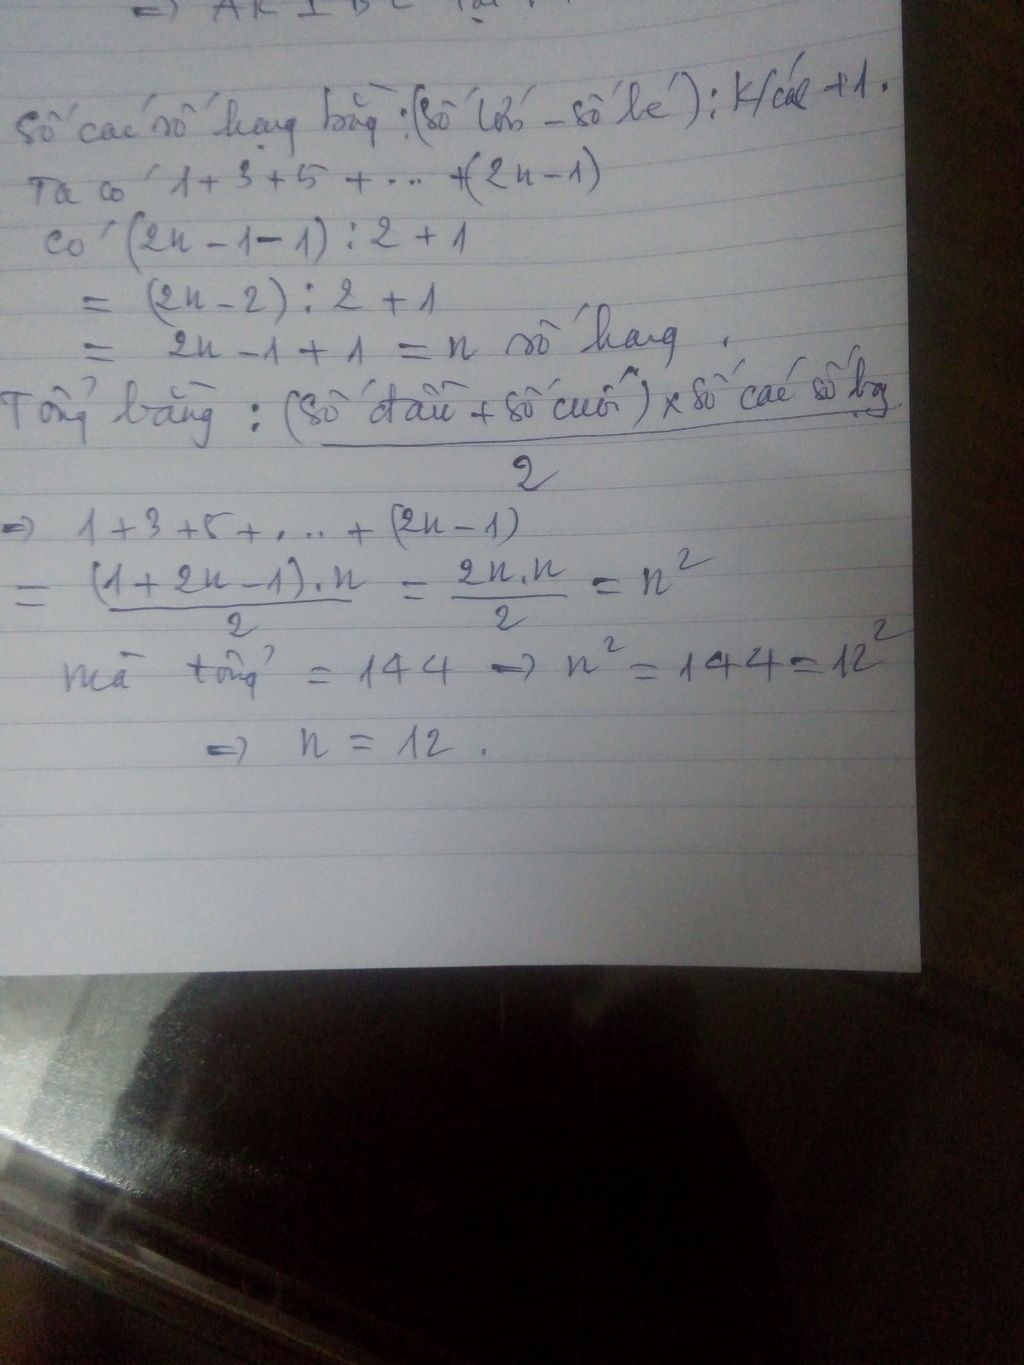 => AK ⊥ BC tại
Số các số hạng bằng : (Số lớn - số bé) : K/cách + 1.
Ta có 1 + 3 + 5 + ... + (2n - 1)
có (2n - 1 - 1) : 2 + 1
= (2n - 2) : 2 + 1
= 2n - 1 + 1 = n số hạng.
Tổng bằng : (Số đầu + Số cuối) x Số các số hạng
2
=> 1 + 3 + 5 + ... + (2n - 1)
= (1 + 2n - 1) . n / 2 = 2n.n / 2 = n²
mà tổng = 144 => n² = 144 = 12²
=> n = 12.